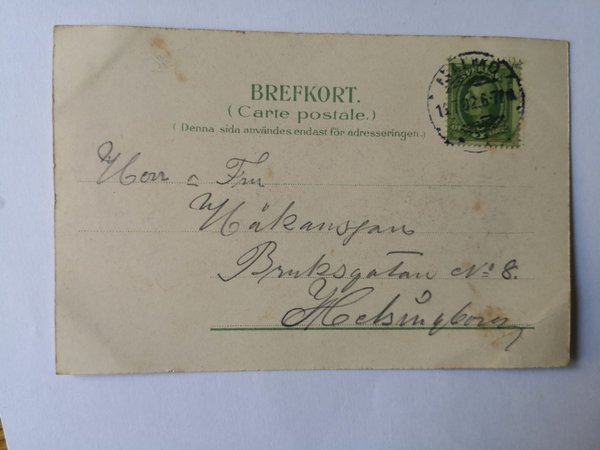 BREFKORT.
(Carte postale.)
(Denna sida användes endast för adresseringen.)
Herr & Fru
Håkansson
Bruksgatan No 8.
Helsingborg